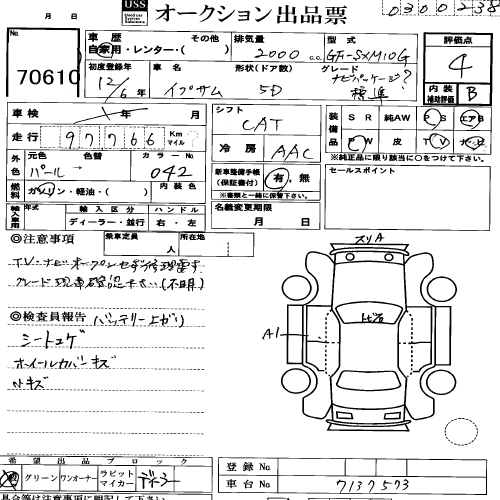 月 日
USS オークション出品票
0300238
No.
70610
車歴
自家用・レンター・( ) その他
排気量
2000 c.c.
型式
GF-SXM10G
評価点
4
初度登録年月
12/6 年
車名
イプサム
形状(ドア数)
5D
グレード
ナビパッケージ?
標準
内装
補助評価
B
車検 年 月
シフト
CAT
装備品
S R 純AW P S エアB
P W 皮 T V ナビ
※純正品に限り該当に○をつけて下さい。
走行 97766 Km マイル
冷房
AAC
外色 元色 色替 カラーNo
パール 042
セールスポイント
燃料 ガソリン・軽油・( ) 内装色
新車整備手帳
(保証書付) 有・無
※書類と一緒に保管下さい。
輸入車用 年式 輸入区分 ハンドル
ディーラー・並行 右・左
名義変更期限
月 日
◎注意事項
乗車定員 人
所在地
TV・ナビオープンセず
グレード現車確認下さい(不明)
スリA
トビ石
A1
◎検査員報告 バッテリー上がり
シートコゲ
ホイールカバーキズ
内キズ
希望出品ブロック
グリーン ワンオーナー ラビットマイカー ディーラー
登録No
車台No 7137573